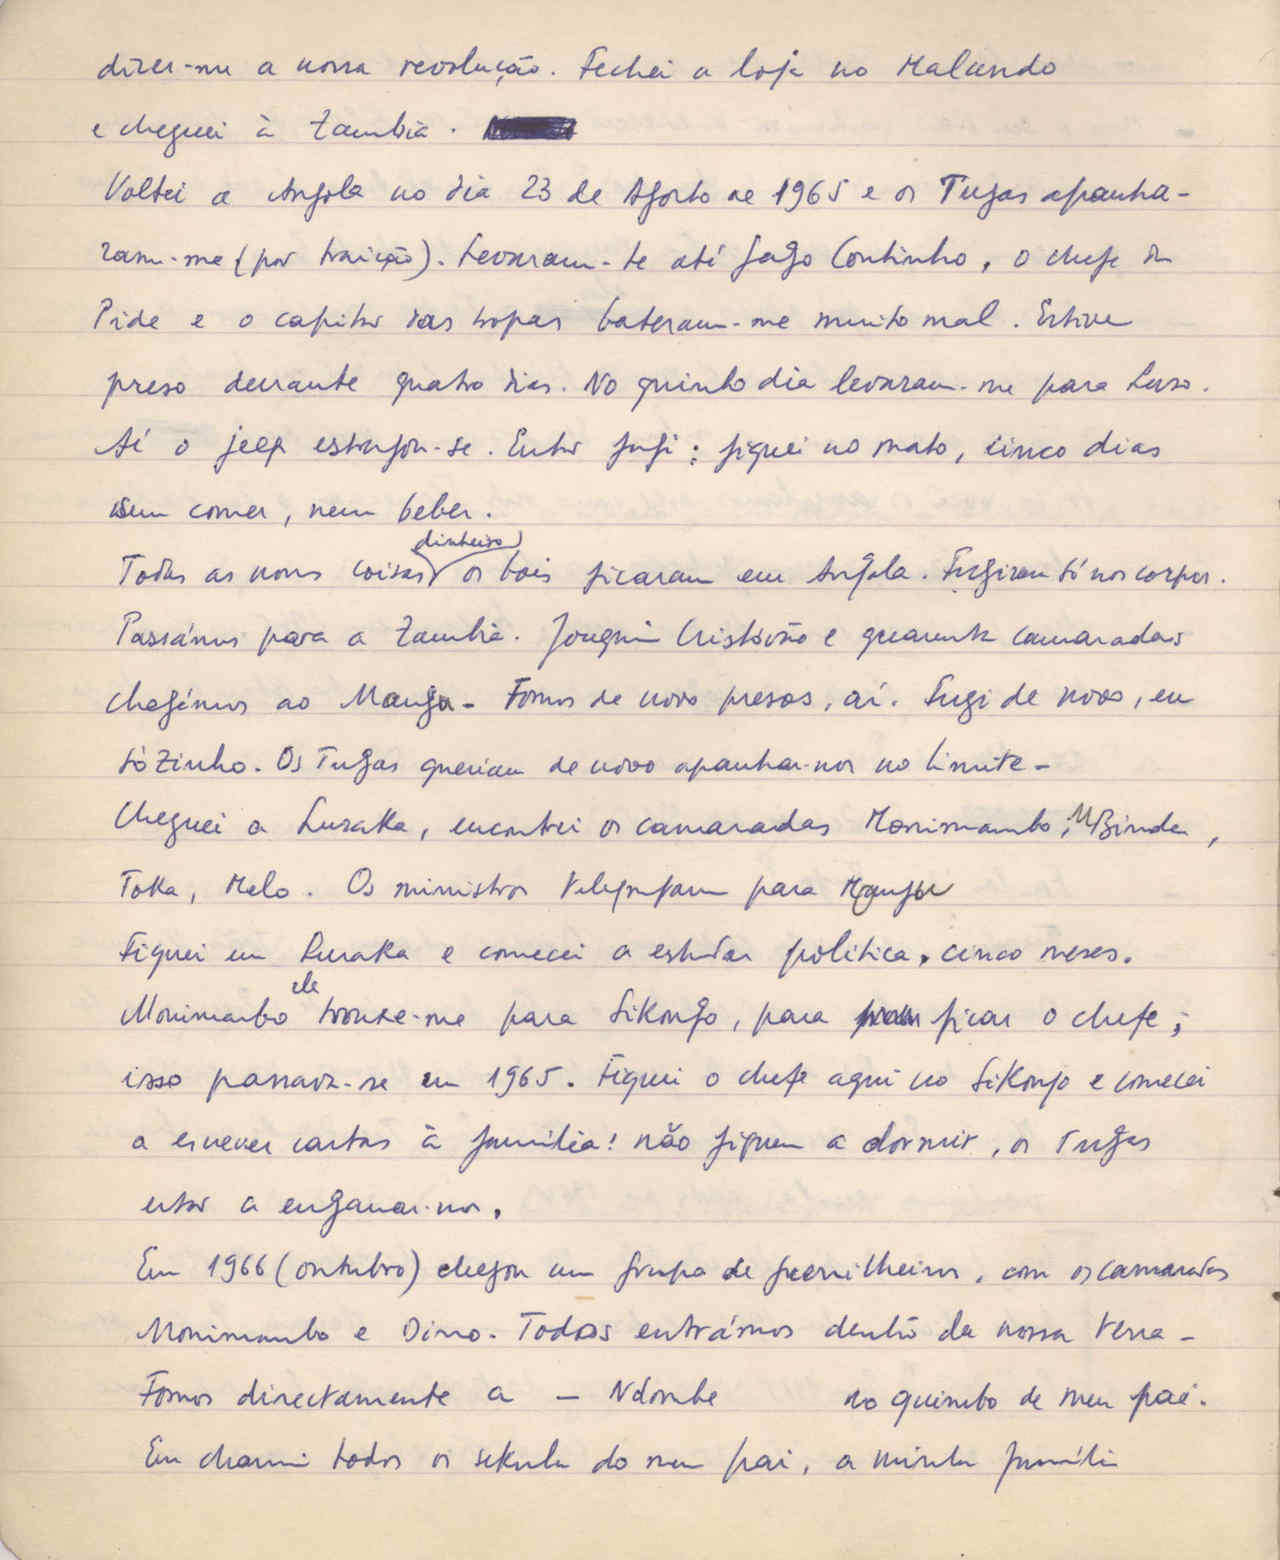 dizer-me a nossa revolução. Fechei a loja no Malundo
e cheguei à Zambia.
Voltei a Angola no dia 23 de Agosto de 1965 e os Tugas apanha-
ram-me (por traição). Levaram-te até Gago Coutinho, o chefe da
Pide e o capitão das tropas bateram-me muito mal. Estive
preso durante quatro dias. No quinto dia levaram-me para Luso.
Aí o jeep estragou-se. Então fugi: fiquei no mato, cinco dias
sem comer, nem beber.
dinheiro
Todas as nossas coisas os bois ficaram em Angola. Fugiram só nos corpos.
Passámos para a Zambia. Joaquim Cristóvão e quarenta camaradas
chegámos ao Mangu - Fomos de novo presos, aí. Fugi de novo, eu
sòzinho. Os Tugas queriam de novo apanhar-nos no limite -
Cheguei a Lusaka, encontrei os camaradas Monimambo, M'Binda,
Toka, Melo. Os ministros telegrafam para Mangu
Fiquei em Lusaka e comecei a estudar política, cinco meses.
ele
Monimambo trouxe-me para Sikongo, para ficar o chefe;
isso passava-se em 1965. Fiquei o chefe aqui no Sikongo e comecei
a escrever cartas à família! não fiquem a dormir, os Tugas
estão a enganar-nos.
Em 1966 (outubro) chegou um grupo de guerrilheiros, com os camaradas
Monimambo e Dino. Todos entrámos dentro da nossa terra -
Fomos directamente a - Ndombe no quimbo de meu pai.
Eu chamei todos os sekulu do meu pai, a minha família